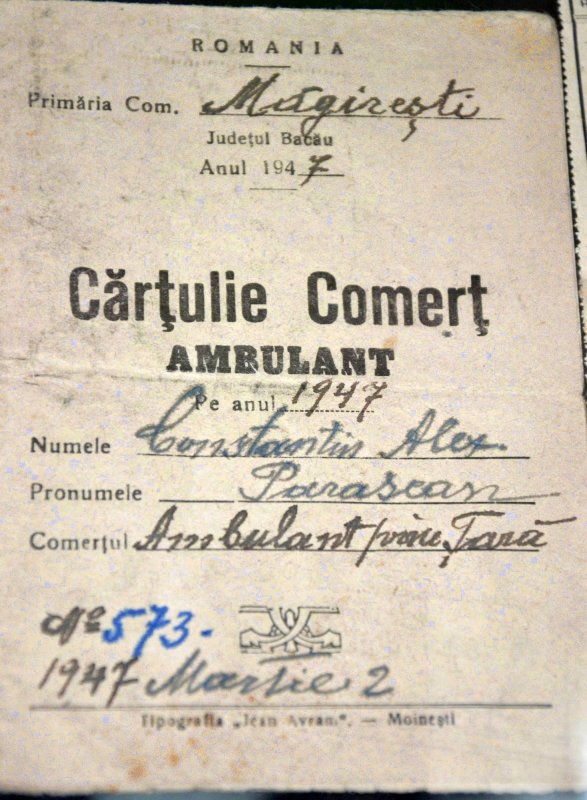 ROMANIA
Primăria Com. Măgirești
Judeţul Bacău
Anul 1947
Cărţulie Comerţ
AMBULANT
Pe anul 1947
Numele Constantin Alex.
Pronumele
Comerţul Ambulant prin Ţară
No 573.
1947 Martie 2
Tipografia „Jean Avram". — Moineşti